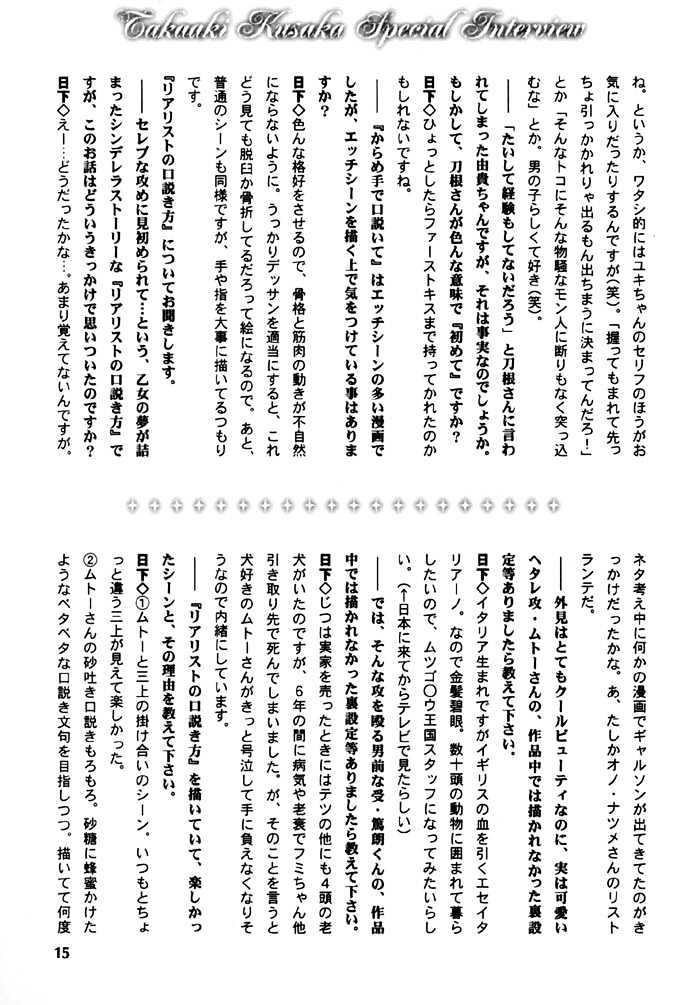 Takaaki Kusaka Special Interview
ね。というか、ワタシ的にはユキちゃんのセリフのほうがお
気に入りだったりするんですが（笑）。「握ってもまれて先っ
ちょ引っかかれりゃ出るもん出ちまうに決まってんだろ！」
とか「そんなトコにそんな物騒なモン人に断りもなく突っ込
むな」とか。男の子らしくて好き（笑）。
――「たいして経験もしてないだろう」と刀根さんに言わ
れてしまった由貴ちゃんですが、それは事実なのでしょうか。
もしかして、刀根さんが色んな意味で『初めて』ですか？
日下◇ひょっとしたらファーストキスまで持ってかれたのか
もしれないですね。
――『からめ手で口説いて』はエッチシーンの多い漫画で
したが、エッチシーンを描く上で気をつけている事はありま
すか？
日下◇色んな格好をさせるので、骨格と筋肉の動きが不自然
にならないように。うっかりデッサンを適当にすると、これ
どう見ても脱臼か骨折してるだろって絵になるので。あと、
普通のシーンも同様ですが、手や指を大事に描いてるつもり
です。
『リアリストの口説き方』についてお聞きします。
――セレブな攻めに見初められて…という、乙女の夢が詰
まったシンデレラストーリーな『リアリストの口説き方』で
すが、このお話はどういうきっかけで思いついたのですか？
日下◇えー…どうだったかな…。あまり覚えてないんですが。
ネタ考え中に何かの漫画でギャルソンが出てきてたのがき
っかけだったかな。あ、たしかオノ・ナツメさんのリスト
ランテだ。
――外見はとてもクールビューティなのに、実は可愛い
ヘタレ攻・ムトーさんの、作品中では描かれなかった裏設
定等ありましたら教えて下さい。
日下◇イタリア生まれですがイギリスの血を引くエセイタ
リアーノ。なので金髪碧眼。数十頭の動物に囲まれて暮ら
したいので、ムツゴ〇ウ王国スタッフになってみたいらし
い。（↑日本に来てからテレビで見たらしい）
――では、そんな攻を殴る男前な受・篤朗くんの、作品
中では描かれなかった裏設定等ありましたら教えて下さい。
日下◇じつは実家を売ったときにはテツの他にも４頭の老
犬がいたのですが、６年の間に病気や老衰でフミちゃん他
引き取り先で死んでしまいました。が、そのことを言うと
犬好きのムトーさんがきっと号泣して手に負えなくなりそ
うなので内緒にしています。
――『リアリストの口説き方』を描いていて、楽しかっ
たシーンと、その理由を教えて下さい。
日下◇①ムトーと三上の掛け合いのシーン。いつもとちょ
っと違う三上が見えて楽しかった。
②ムトーさんの砂吐き口説きもろもろ。砂糖に蜂蜜かけた
ようなベタベタな口説き文句を目指しつつ。描いてて何度
15